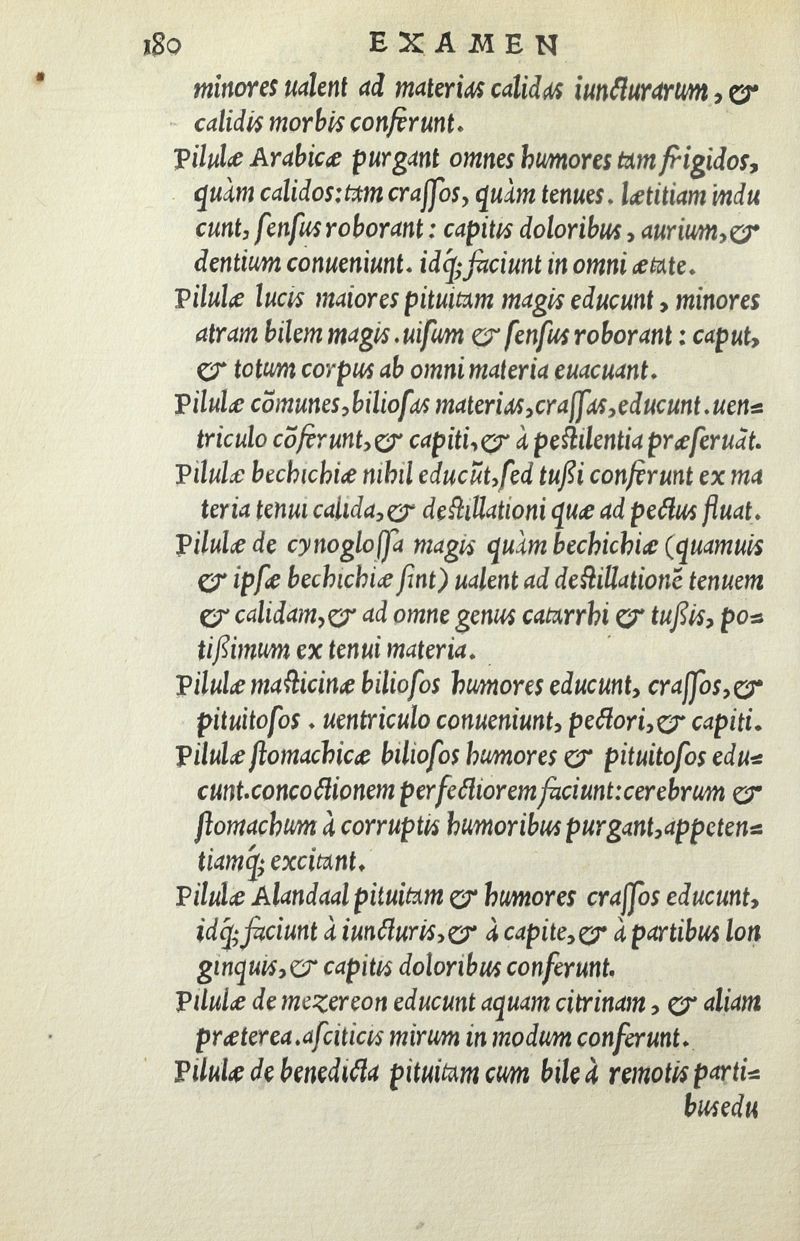 180 EXAMEN
minores ualent ad materias calidas iuncturarum, &
calidis morbis conferunt.
Pilulæ Arabicæ purgant omnes humores tam frigidos,
quàm calidos: tam craſſos, quàm tenues. lætitiam indu
cunt, ſenſus roborant: capitis doloribus, aurium, &
dentium conueniunt. idq́; faciunt in omni ætate.
Pilulæ lucis maiores pituitam magis educunt, minores
atram bilem magis. uiſum & ſenſus roborant: caput,
& totum corpus ab omni materia euacuant.
Pilulæ cōmunes, bilioſas materias, craſſas, educunt. uen=
triculo cōferunt, & capiti, & à peſtilentia præſeruāt.
Pilulæ bechichiæ nihil educūt, ſed tußi conferunt ex ma
teria tenui calida, & deſtillationi quæ ad pectus fluat.
Pilulæ de cynogloſſa magis quàm bechichiæ (quamuis
& ipſæ bechichiæ ſint) ualent ad deſtillationē tenuem
& calidam, & ad omne genus catarrhi & tußis, po=
tißimum ex tenui materia.
Pilulæ maſticinæ bilioſos humores educunt, craſſos, &
pituitoſos. uentriculo conueniunt, pectori, & capiti.
Pilulæ ſtomachicæ bilioſos humores & pituitoſos edu=
cunt. concoctionem perfectiorem faciunt: cerebrum &
ſtomachum à corruptis humoribus purgant, appeten=
tiamq́; excitant.
Pilulæ Alandaal pituitam & humores craſſos educunt,
idq́; faciunt à iuncturis, & à capite, & à partibus lon
ginquis, & capitis doloribus conferunt.
Pilulæ de mezereon educunt aquam citrinam, & aliam
præterea. aſciticis mirum in modum conferunt.
Pilulæ de benedicta pituitam cum bile à remotis parti=
bus edu